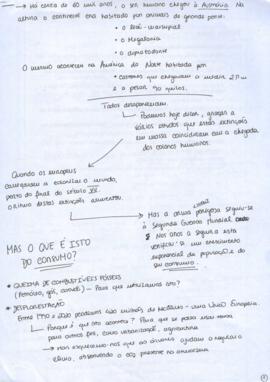 → Há cerca de 60 mil anos, o ser humano chegou à Austrália. Na
altura o continente era habitado por animais de grande porte:
• o leão-marsupial
• o Megalania
• o diprotodonte
O mesmo aconteceu na América do Norte habitada por
• castores que chegavam a medir 2 m
e a pesar 90 quilos.
Todos desapareceram.
Podemos hoje dizer, graças a
vários estudos que estas extinções
em massa coincidiram com a chegada
dos colonos humanos.
Quando os europeus
começaram a colonizar o mundo,
perto do final do século XV,
o ritmo destas extinções aumentou.
Mas a curva perigosa seguiu-se
à Segunda Guerra Mundial
Nos anos a seguir a esta
verificou-se um crescimento
exponencial da população e do
seu consumo.
MAS O QUE É ISTO
DO CONSUMO?
• QUEIMA DE COMBUSTÍVEIS FÓSSEIS
(Petróleo, gás, carvão) — Para que utilizamos isto?
• DESFLORESTAÇÃO
Entre 1990 e 2020 perdemos 420 milhões de hectares - uma União Europeia.
Porque é que isto acontece? Para que se possa usar terra
para outros fins, como urbanização, agricultura
não esquecemos-nos que as árvores ajudam a regular o
clima, absorvendo o CO2 presente na atmosfera